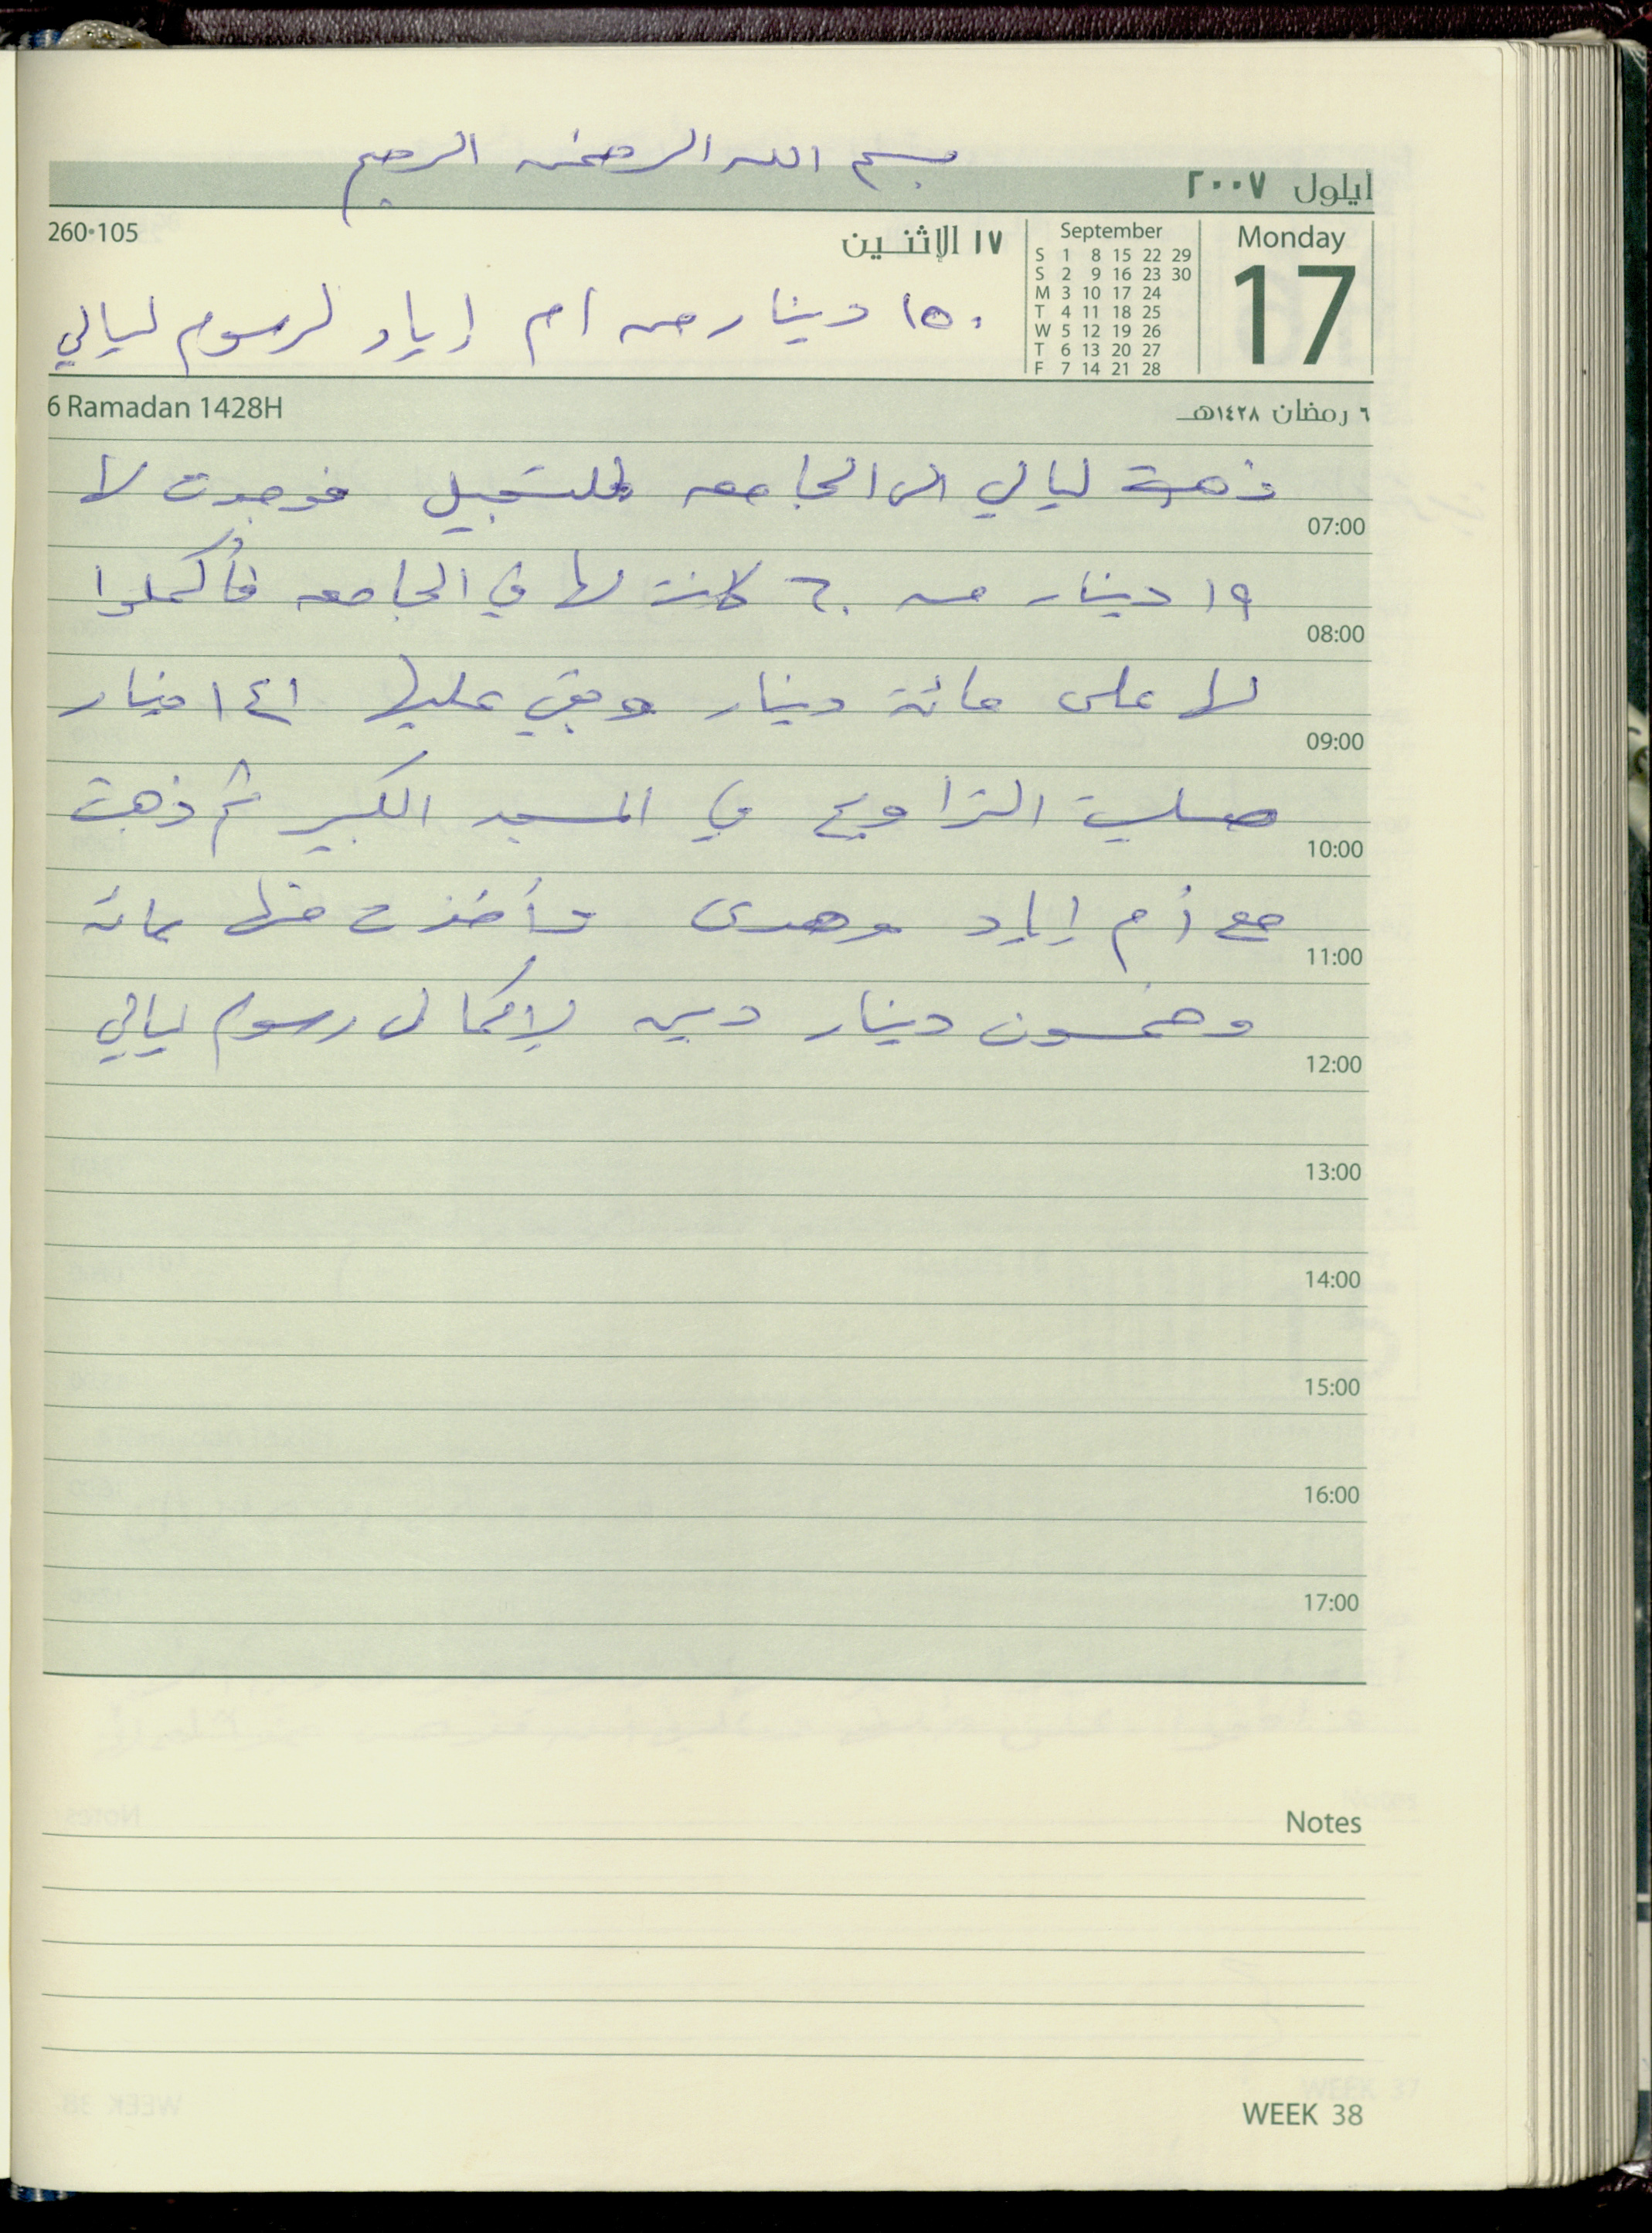 بسم الله الرحمن الرحيم
أيلول ٢٠٠٧
Monday
17
September
S 1 8 15 22 29
S 2 9 16 23 30
M 3 10 17 24
T 4 11 18 25
W 5 12 19 26
T 6 13 20 27
F 7 14 21 28
١٧ الإثنـين
260•105
١٥٠ دينار من أم إياد لرسوم ليالي
٦ رمضان ١٤٢٨هـ
6 Ramadan 1428H
ذهبت ليالي الى الجامعه للتسجيل فوجدت لها
07:00
١٩ دينار من ٦٠ كانت لها في الجامعه فأكملوا
08:00
لها على مائة دينار وبقي عليها ١٤١ دينار
09:00
صليت التراويح في المسجد الكبير ثم ذهبت
10:00
مع أم إياد وهدى فأخذت منها مائة
11:00
وخمسون دينار دين لإكمال رسوم ليالي
12:00
13:00
14:00
15:00
16:00
17:00
Notes
WEEK 38